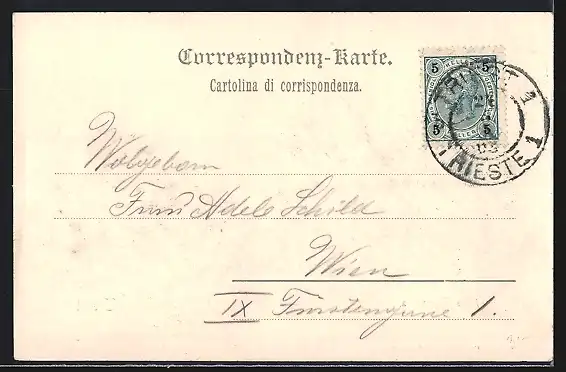 Correspondenz-Karte.
Cartolina di corrispondenza.
5 HELLER 5
5 HELLER 5
TRIEST 1
TRIESTE 1
Wohlgeborn
Frau Adele Schild
Wien
IX 1.